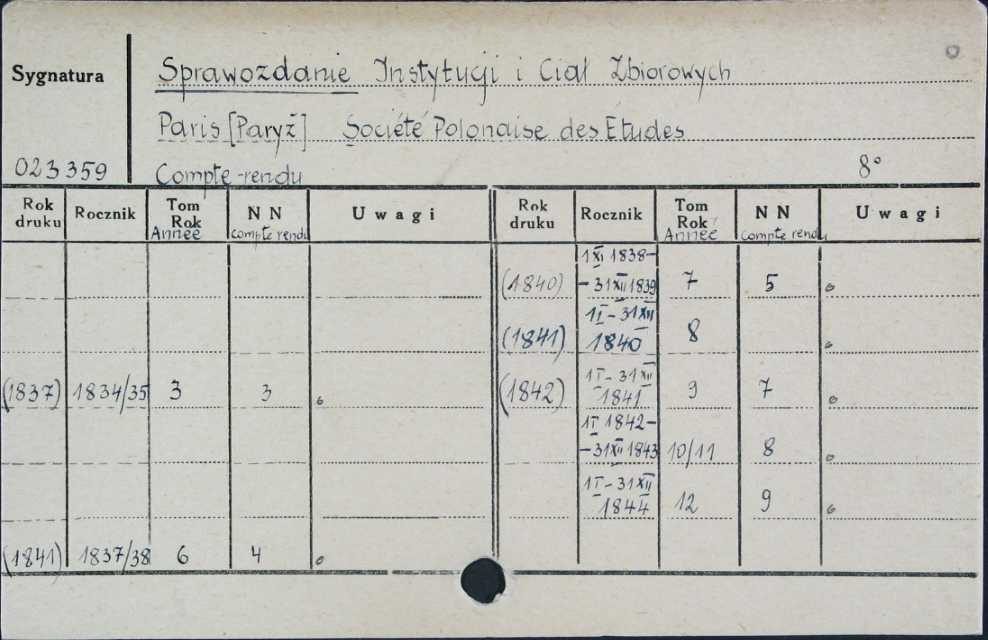 Sygnatura
Sprawozdanie Instytucji i Ciał Zbiorowych
Paris [Paryż] Société Polonaise des Études
023359
Compte-rendu 8°
Rok druku Rocznik Tom Rok Année NN compte rendu Uwagi
Rok druku Rocznik Tom Rok Année NN compte rendu Uwagi
(1837) 1834/35 3 3
(1841) 1837/38 6 4
1 XI 1838-
(1840) -31 XII 1839 7 5
1 I - 31 XII
(1841) 1840 8
1 I - 31 XII
(1842) 1841 9 7
1 I 1842-
-31 XII 1843 10/11 8
1 I - 31 XII
1844 12 9